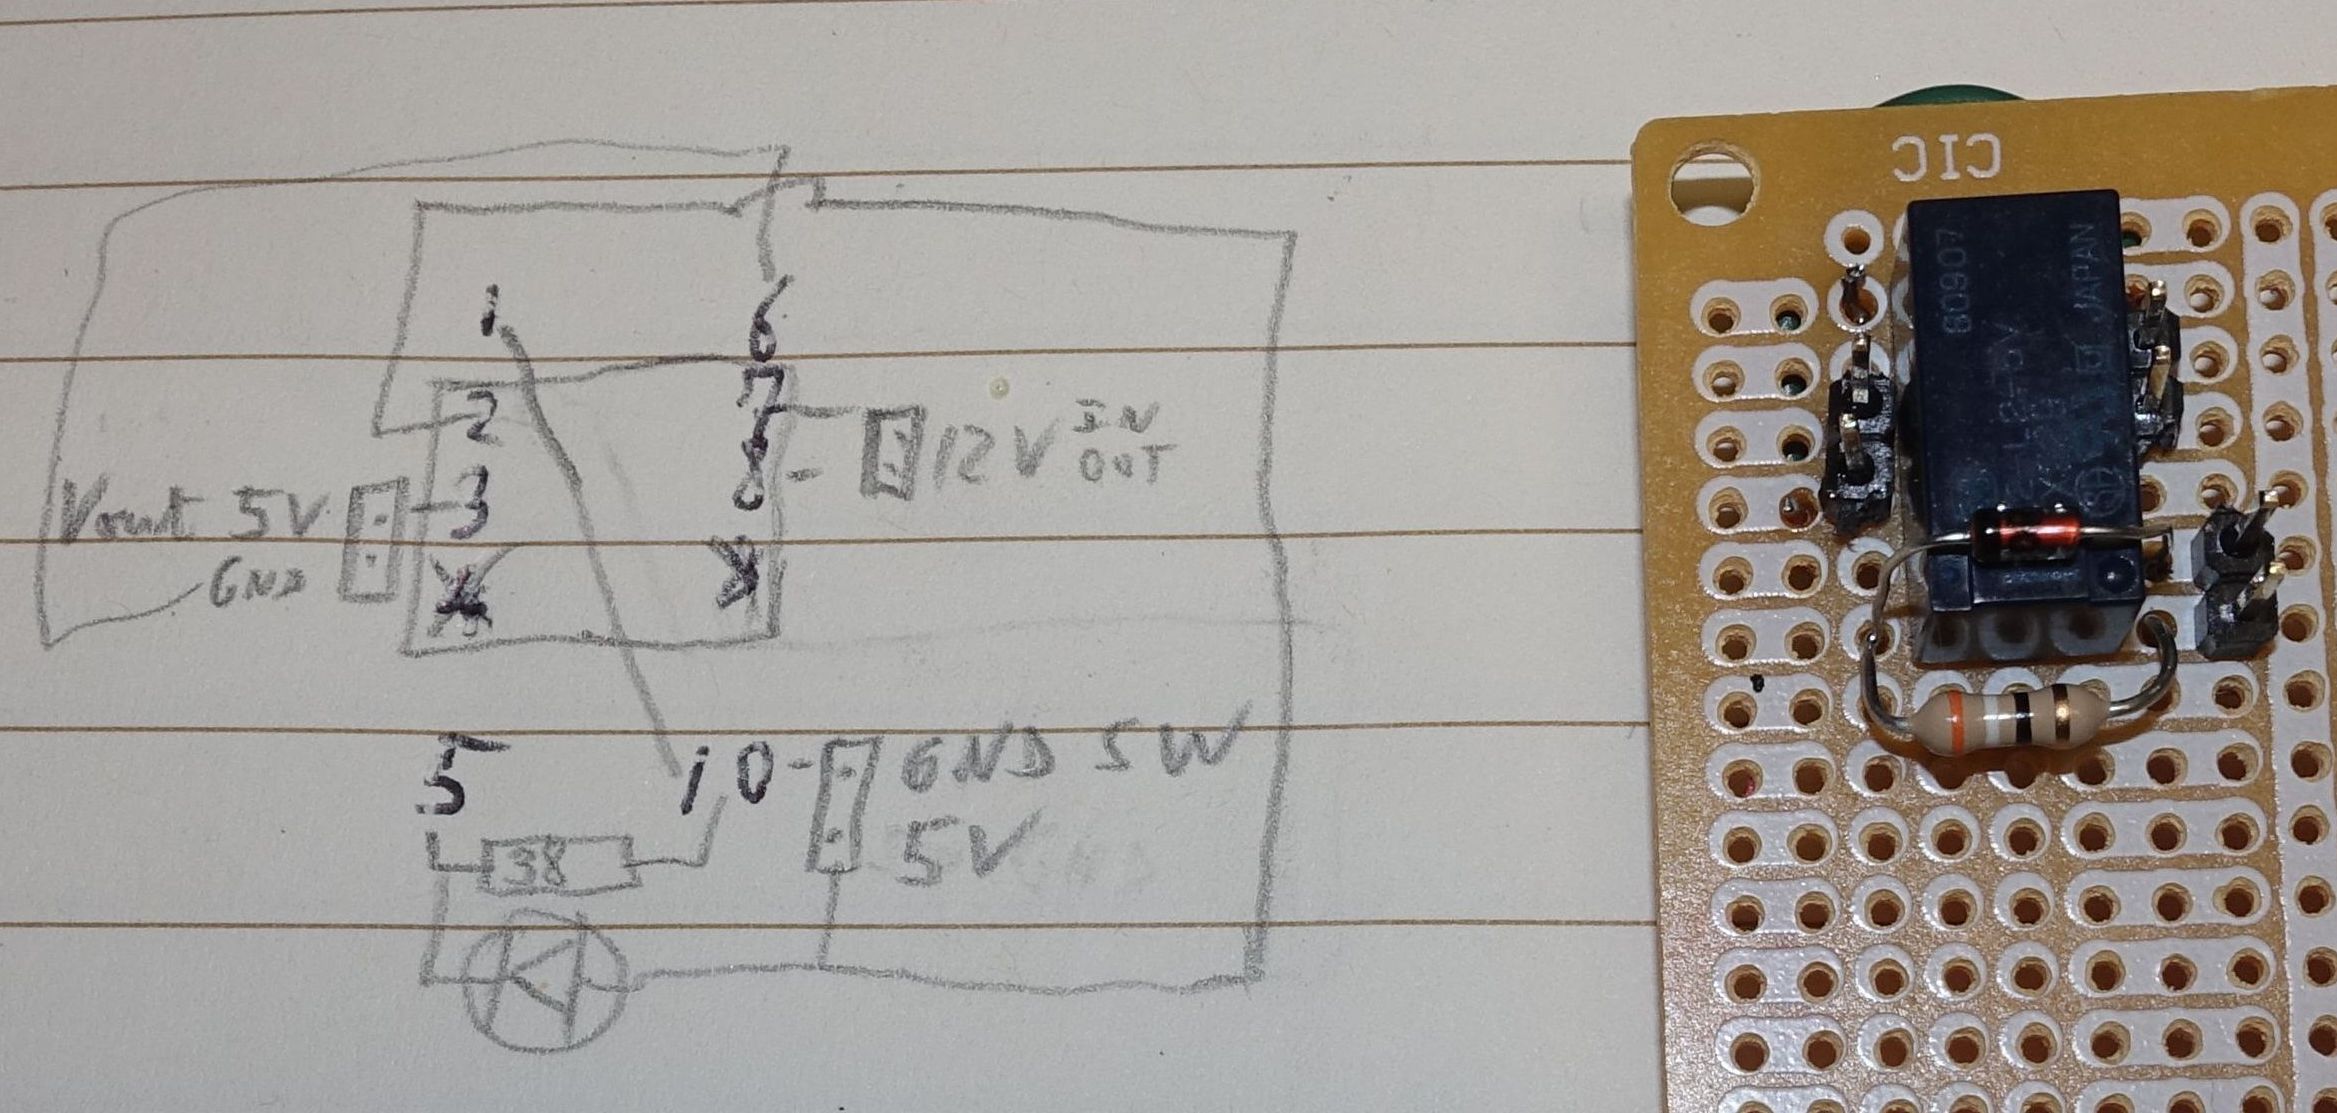 1
6
2
7
3
8
Vout 5V
GND
12V IN
OUT
5
10
GND SW
5V
38
CIC
80907
JAPAN